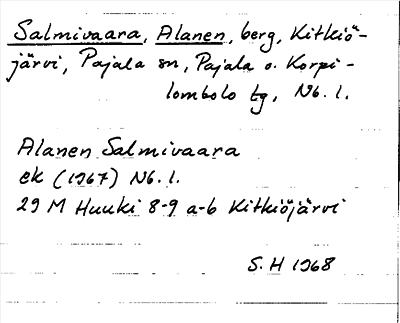 Salmivaara, Alanen, berg, Kitkiö-
järvi, Pajala sn, Pajala o. Korpi-
lombolo tg, Nb. l.
Alanen Salmivaara
ek (1967) Nb. l.
29 M Huuki 8-9 a-b Kitkiöjärvi
S. H 1968